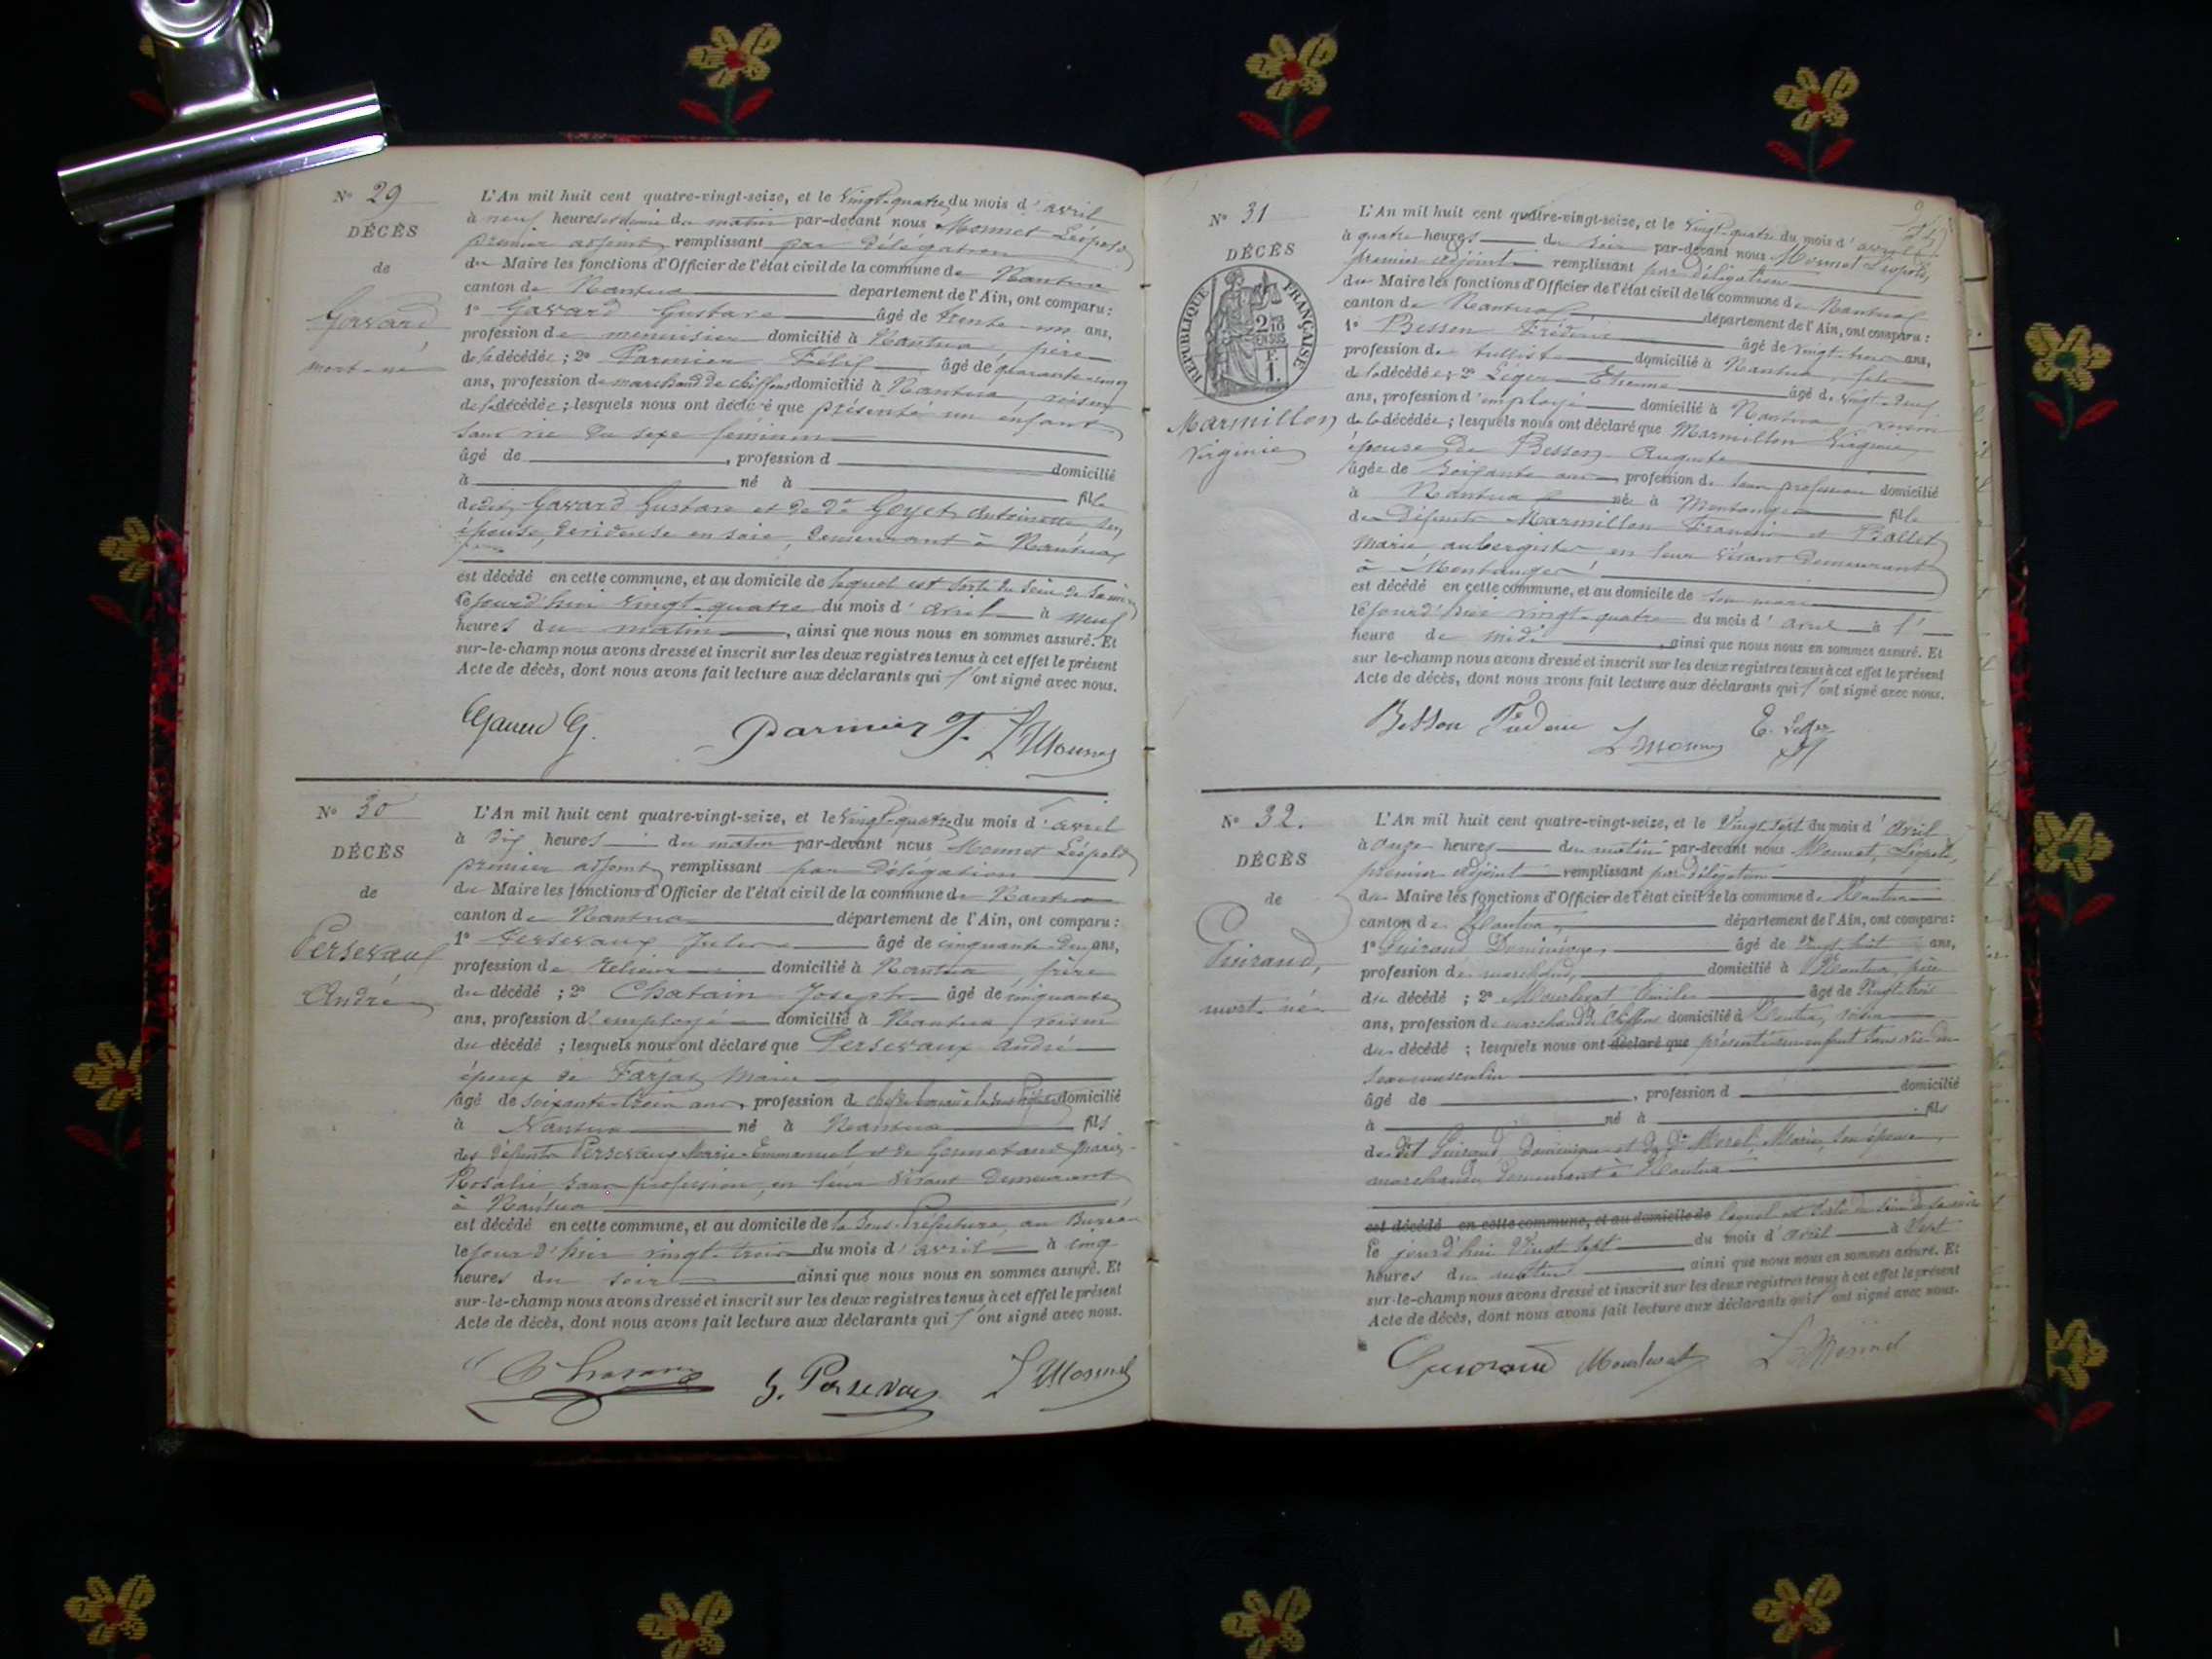 N° 29
DÉCÈS
de
Gavard
mort-né
L'An mil huit cent quatre-vingt-seize, et le vingt-quatre du mois d'avril
à neuf heures et demie du matin par-devant nous Monnet Léopold
premier adjoint remplissant par délégation
du Maire les fonctions d'Officier de l'état civil de la commune de Nantua
canton de Nantua département de l'Ain, ont comparu :
1° Gavard Gustave âgé de trente-un ans,
profession de menuisier domicilié à Nantua, père
de la décédée ; 2° Parmier Félix âgé de quarante-cinq
ans, profession de marchand de chiffons domicilié à Nantua, voisin
de la décédée ; lesquels nous ont déclaré que présenté un enfant
sans vie du sexe féminin
âgé de , profession d domicilié
à né à fille
dudit Gavard Gustave et de de Goyet Antoinette son
épouse, dévideuse en soie, demeurant à Nantua
est décédé en cette commune, et au domicile de lequel est sorti du sein de sa mère
le jourd'hui vingt-quatre du mois d'avril à neuf
heures du matin , ainsi que nous nous en sommes assuré. Et
sur-le-champ nous avons dressé et inscrit sur les deux registres tenus à cet effet le présent
Acte de décès, dont nous avons fait lecture aux déclarants qui l'ont signé avec nous.
Gavard G. Parmier F. L. Monnet
N° 30
DÉCÈS
de
Persevaux
André
L'An mil huit cent quatre-vingt-seize, et le vingt-quatre du mois d'avril
à dix heures du matin par-devant nous Monnet Léopold
premier adjoint remplissant par délégation
du Maire les fonctions d'Officier de l'état civil de la commune de Nantua
canton de Nantua département de l'Ain, ont comparu :
1° Persevaux Jules âgé de cinquante-deux ans,
profession de relieur domicilié à Nantua frère
du décédé ; 2° Chatain Joseph âgé de cinquante
ans, profession d'employé domicilié à Nantua voisin
du décédé ; lesquels nous ont déclaré que Persevaux André
époux de Farjas Marie
âgé de soixante-trois ans, profession de chef de bureau à la sous-préfecture domicilié
à Nantua né à Nantua fils
des défunts Persevaux Marie-Emmanuel et de Marie-
Rosalie sans profession, en leur vivant demeurant
à Nantua
est décédé en cette commune, et au domicile de la Sous-Préfecture, au Bureau
le jour d'hier vingt-trois du mois d'avril à cinq
heures du soir ainsi que nous nous en sommes assuré. Et
sur-le-champ nous avons dressé et inscrit sur les deux registres tenus à cet effet le présent
Acte de décès, dont nous avons fait lecture aux déclarants qui l'ont signé avec nous.
J. Persevaux L. Monnet
N° 31
DÉCÈS
RÉPUBLIQUE FRANÇAISE
2/10 EN SUS
F. 1.
Marmillon
Virginie
L'An mil huit cent quatre-vingt-seize, et le vingt-quatre du mois d'avril
à quatre heures du soir par-devant nous Monnet Léopold,
premier adjoint remplissant par délégation
du Maire les fonctions d'Officier de l'état civil de la commune de Nantua
canton de Nantua département de l'Ain, ont comparu :
1° Besson Frédéric âgé de vingt-trois ans,
profession de tulliste domicilié à Nantua, fils
de la décédée ; 2° Léger Etienne âgé de vingt-neuf
ans, profession d'employé domicilié à Nantua, voisin
de la décédée ; lesquels nous ont déclaré que Marmillon Virginie,
épouse de Besson Auguste
âgée de soixante ans profession de sans profession domicilié
à Nantua née à Montanges fille
des défunts Marmillon François et Ballet
Marie, aubergistes en leur vivant demeurant
à Montanges
est décédé en cette commune, et au domicile de son mari
le jourd'hui vingt-quatre du mois d'avril à l'
heure de midi , ainsi que nous nous en sommes assuré. Et
sur le-champ nous avons dressé et inscrit sur les deux registres tenus à cet effet le présent
Acte de décès, dont nous avons fait lecture aux déclarants qui l'ont signé avec nous.
Besson L. Monnet E. Léger
N° 32.
DÉCÈS
de
Guiraud,
mort-né
L'An mil huit cent quatre-vingt-seize, et le vingt-sept du mois d'avril
à onze heures du matin par-devant nous Monnet, Léopold,
premier adjoint remplissant par délégation
du Maire les fonctions d'Officier de l'état civil de la commune de Nantua
canton de Nantua, département de l'Ain, ont comparu :
1° Guiraud Dominique, âgé de vingt-huit ans,
profession de marchand, domicilié à Nantua, père
du décédé ; 2° Mourlevat Emile âgé de vingt-trois
ans, profession de marchand de chiffons domicilié à Nantua, voisin
du décédé ; lesquels nous ont déclaré que présenté un enfant sans vie du
sexe masculin
âgé de , profession d domicilié
à né à fils
du dit Guiraud Dominique et de de Morel, Marie, son épouse,
marchande, demeurant à Nantua
est décédé en cette commune, et au domicile de lequel est sorti du sein de sa mère
le jourd'hui vingt-sept du mois d'avril à sept
heures du matin ainsi que nous nous en sommes assuré. Et
sur-le-champ nous avons dressé et inscrit sur les deux registres tenus à cet effet le présent
Acte de décès, dont nous avons fait lecture aux déclarants qui l'ont signé avec nous.
Guiraud Mourlevat L. Monnet